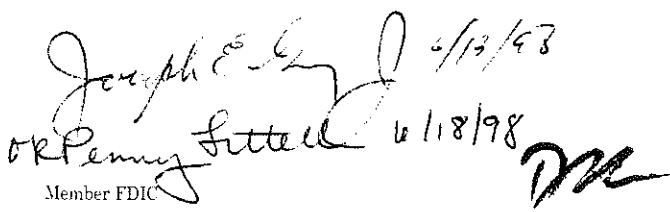 Joseph E. Gray Jr 6/13/98
OK Penny Littell 6/18/98
Member FDIC